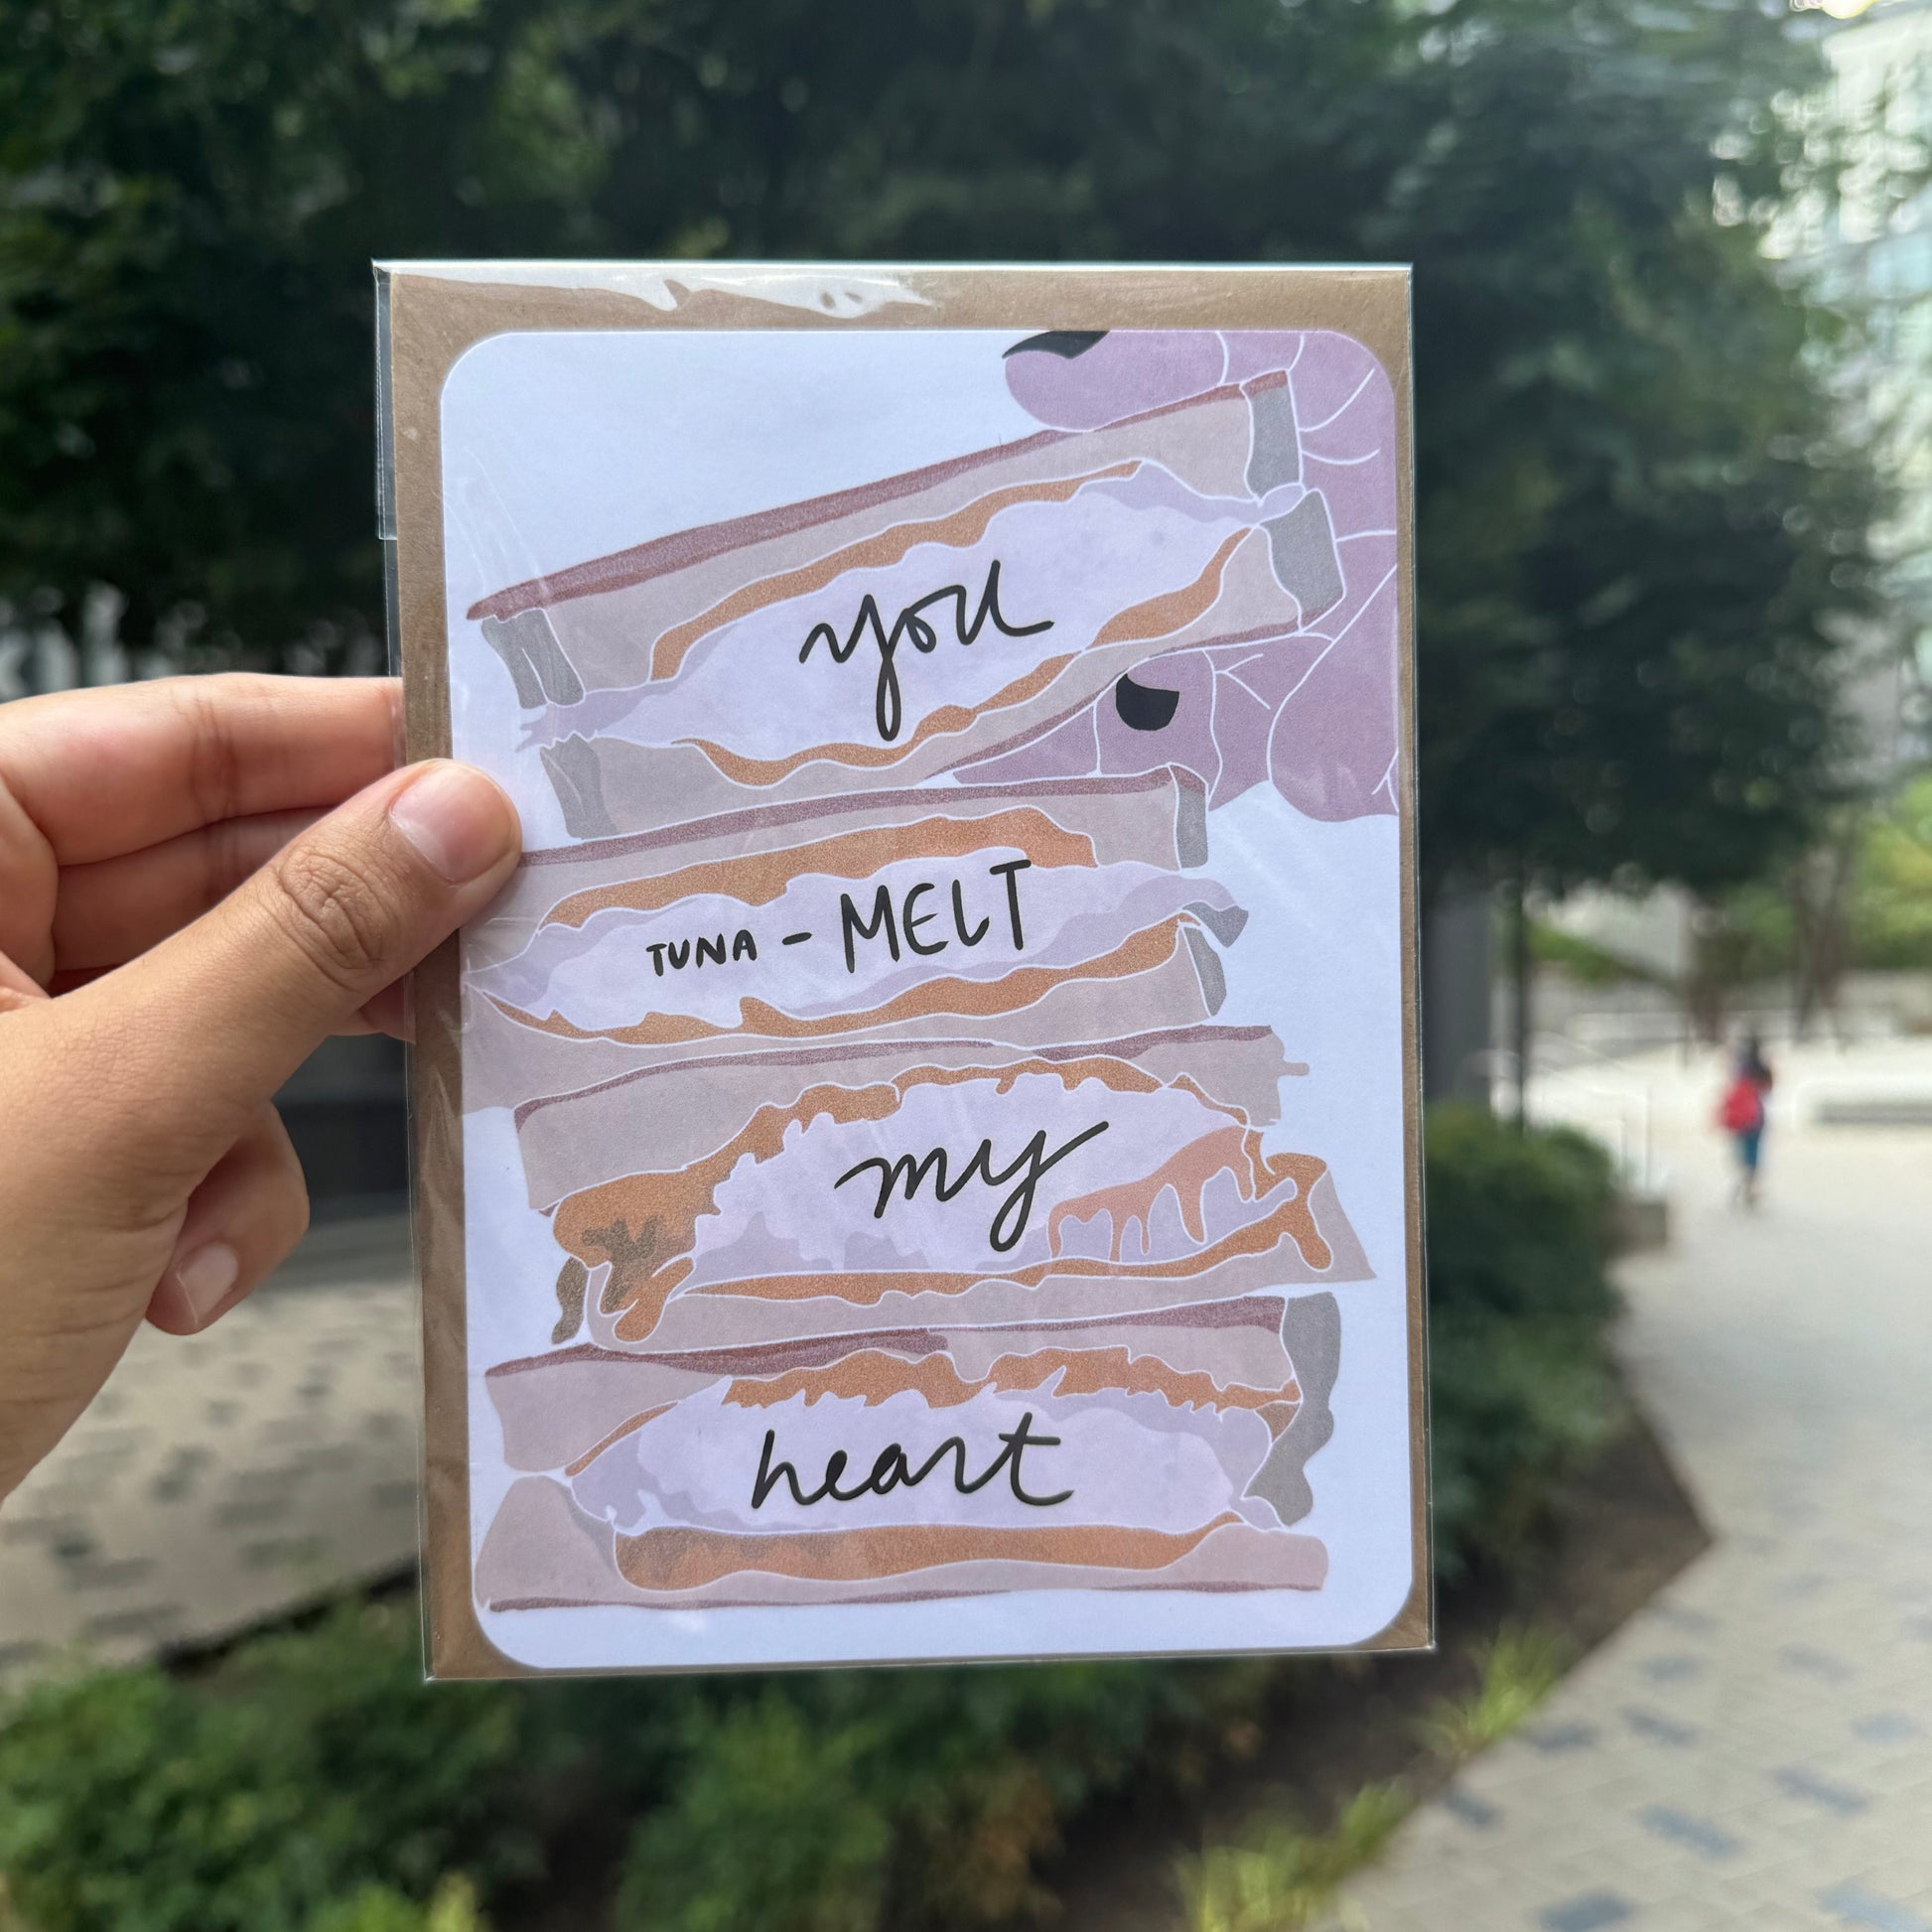 you
TUNA - MELT
my
heart